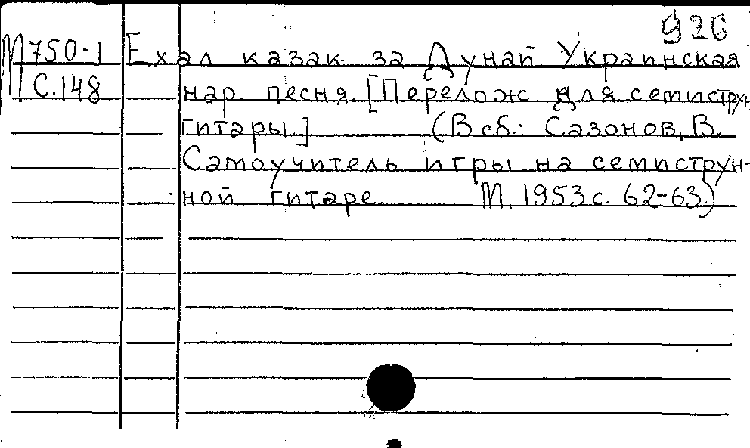 926
М750-1 Ехал казак за Дунай Украинская
С.148 нар. песня. [Перелож для семиструн
гитары.] (В сб.: Сазонов, В.
Самоучитель игры на семиструн-
ной гитаре М. 1953 с. 62-63.)